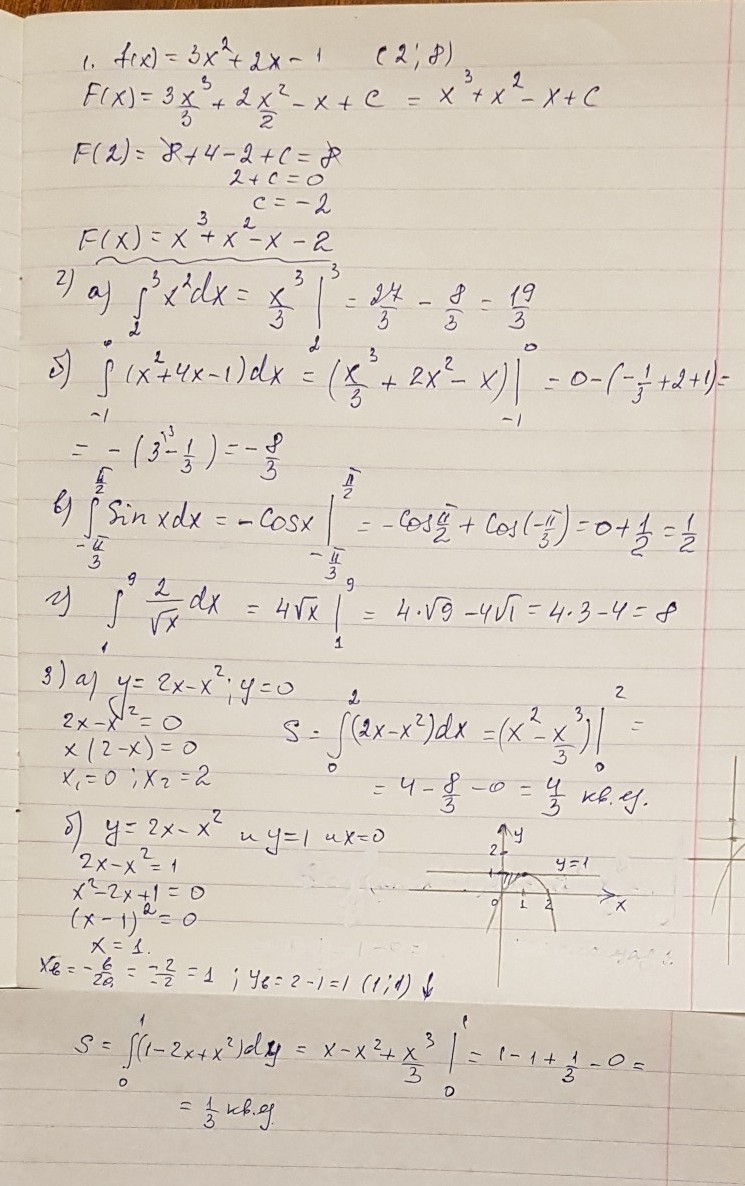 1. f(x) = 3x² + 2x - 1 (2; 8)
F(x) = 3x³/3 + 2x²/2 - x + C = x³ + x² - x + C
F(2) = 8 + 4 - 2 + C = 8
2 + C = 0
C = -2
F(x) = x³ + x² - x - 2
2) а) ∫₂³ x²dx = x³/3 |₂³ = 27/3 - 8/3 = 19/3
б) ∫₋₁⁰ (x² + 4x - 1)dx = (x³/3 + 2x² - x)|₋₁⁰ = 0 - (-1/3 + 2 + 1) =
= - (3 - 1/3) = -8/3
в) ∫ -π/3 π/2 Sin x dx = - Cos x | -π/3 π/2 = -Cos π/2 + Cos(-π/3) = 0 + 1/2 = 1/2
г) ∫₁⁹ 2/√x dx = 4√x |₁⁹ = 4·√9 - 4√1 = 4·3 - 4 = 8
3) а) y = 2x - x²; y = 0
2x - x² = 0
x (2 - x) = 0
x₁ = 0; x₂ = 2
S = ∫₀² (2x - x²)dx = (x² - x³/3)|₀² =
= 4 - 8/3 - 0 = 4/3 кв.ед.
б) y = 2x - x² и y = 1 и x = 0
2x - x² = 1
x² - 2x + 1 = 0
(x - 1)² = 0
x = 1.
y
2
1
y = 1
0 1 2 x
xв = -b/2a = -2/-2 = 1; yв = 2 - 1 = 1 (1; 1) ↓
S = ∫₀¹ (1 - 2x + x²)dy = x - x² + x³/3 |₀¹ = 1 - 1 + 1/3 - 0 =
= 1/3 кв.ед.